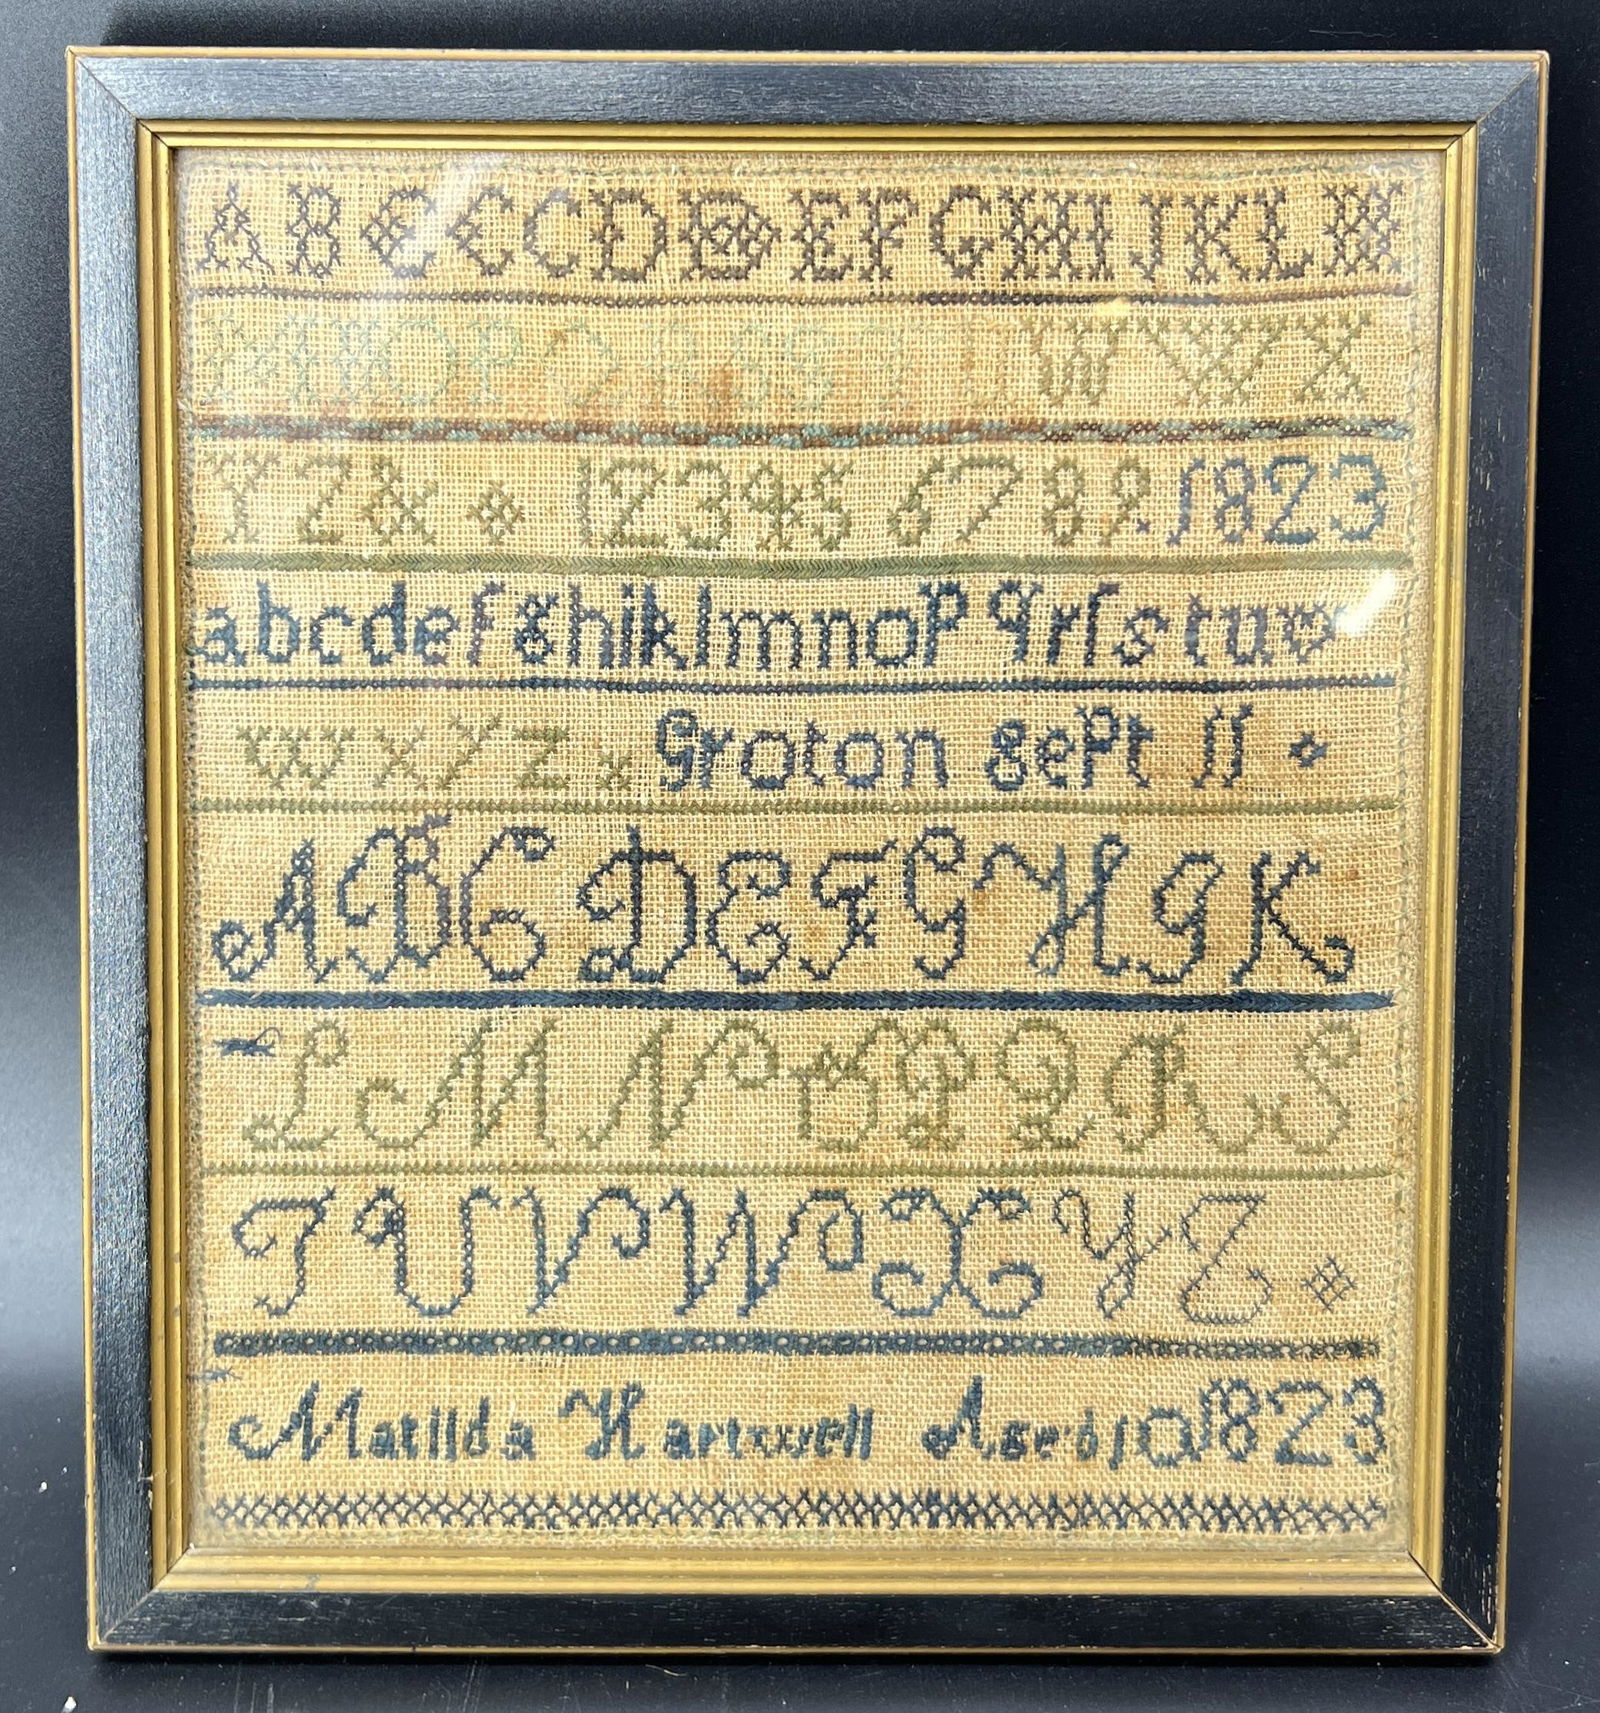 A B C C C D D E F G H I J K L M
M N O P Q R S S T U W W X
Y Z & 1 2 3 4 5 6 7 8 9. 1823
a b c d e f g h i k l m n o p q r ſ s t u v
w x y z x Groton sept 11
A B C D E F G H I K
L M N O P Q R S
T U V W X Y Z
Matilda Hartwell Aged 10 1823